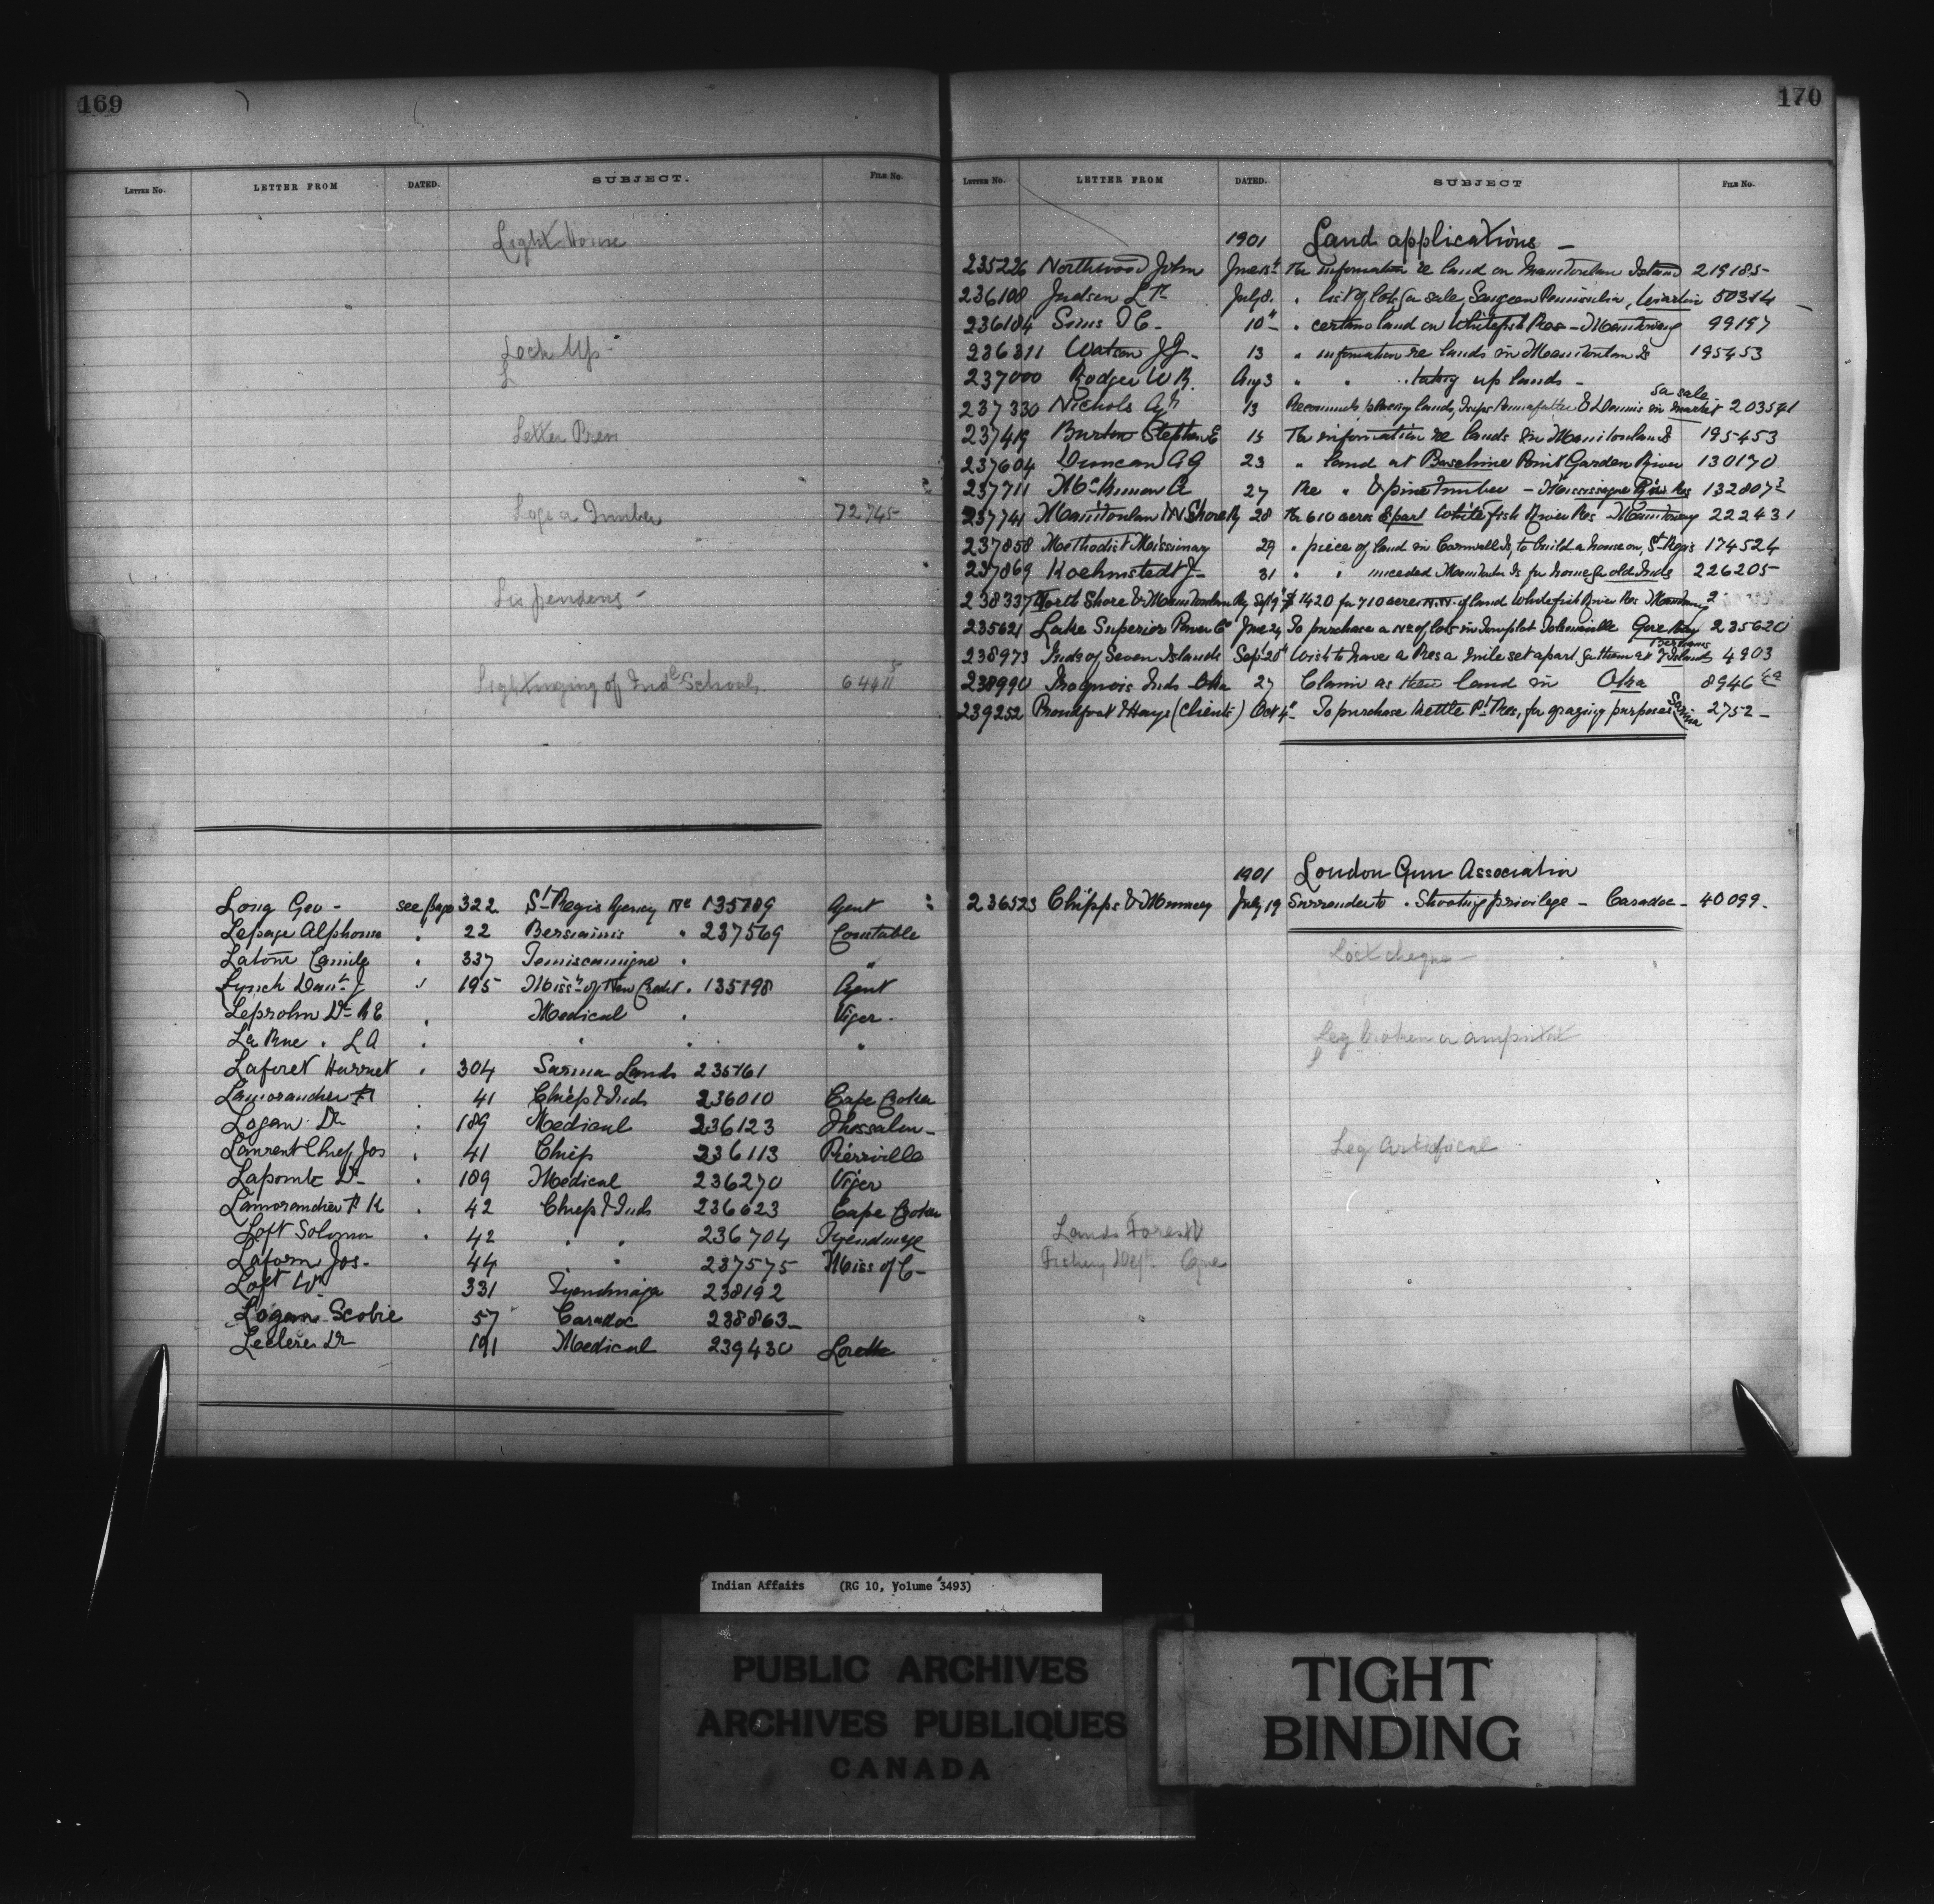 169
LETTER NO. LETTER FROM DATED. SUBJECT. FILE NO.
Light House
Lock Ups -
Letter Press
Logs or Timber 72745
Lis pendens -
Lightning of Ind. Schools
Long Geo - see page 322 St Regis Agency Re 135789 Agent
Lepage Alphonse " 22 Bersiamis " 237569 Constable
Camille " 337 Temiscamigue " "
Lynch Danl J " 195 Miss. of New Credit " 135798 Agent
Leprohn Dr R E " Medical " Viger -
La Rue . L A " " " "
Laforet Harriet " 304 Sarnia Lands 235761
Lamorandier " 41 Chiefs & Inds 236010 Cape Croker
Logan Dr " 189 Medical 236123 Thessalon -
Laurent Chief Jos " 41 Chief 236113 Pierrville
Lapointe Dr " 189 Medical 236270 Viger
Lamorandier F K " 42 Chiefs & Inds 236623 Cape Croker
Loft Solomon " 42 " " 236704 Tyendinaga
Laform Jos - 44 " 237575 Miss of C -
Loft Wm 331 Tyendinaga 238192
Logan Scobie 57 Caradoc 238863 -
Leclerc Dr 191 Medical 239430 Lorette
170
LETTER NO. LETTER FROM DATED. SUBJECT FILE NO.
1901 Land applications -
235226 Northwood John June 18 For information re land on Manitoulin Island 219185 -
236108 Judson L July 8 " list of lots for sale, Saugeen Peninsula, Wiarton 50314
236184 Sims 10 " certain land on Whitefish Res - Manitowaning 99197
236311 Watson J G - 13 " information re lands in Manitoulin Is 195453
237000 Rodger W R. Aug 3 " " " taking up lands -
237330 Nichols Agt 13 Recommends placing lands, Twps Pennefather & Dennis in market for sale 203541
237419 Burton Stephen E 15 For information re lands in Manitoulin Is 195453
237604 Duncan A G 23 " land at Partridge Point Garden River 130170
237711 McKinnon A 27 Re " & pine timber - Mississagua River Res 132807
237741 Manitoulin & N Shore Ry 28 For 610 acres part Whitefish River Res - Manitowaning 222431
237858 Methodist Missionary 29 " piece of land in Cornwall Is, to build a house on, St Regis 174524
237869 Koehmstedt J - 31 " " unceded Manitoulin Is for home for old Inds 226205 -
238337 North Shore & Manitoulin Ry Sept 9 $1420 for 710 acres of land Whitefish River Res
235621 Lake Superior Power Co June 24 To purchase a No of lots in Townplot Gore Bay 235620
238973 Inds of Seven Islands Sep 20 Wish to have a Res a mile set apart for them at 7 Islands Bersiamis 4903
238990 Iroquois Inds Oka 27 Claim as their land in Oka 8946
239252 Proudfoot & Hays (Clients) Oct 4 - To purchase Kettle Pt Res, for grazing purposes Sarnia 2752 -
1901 London Gun Association
236523 Chipps & Muncey July 19 Surrender to " Shooting privilege - Caradoc - 40099 -
Lost cheque -
Leg broken or
Leg Artificial
Lands Forest &
Fishery Dept
Indian Affairs (RG 10, Volume 3493)
PUBLIC ARCHIVES
ARCHIVES PUBLIQUES
CANADA
TIGHT
BINDING